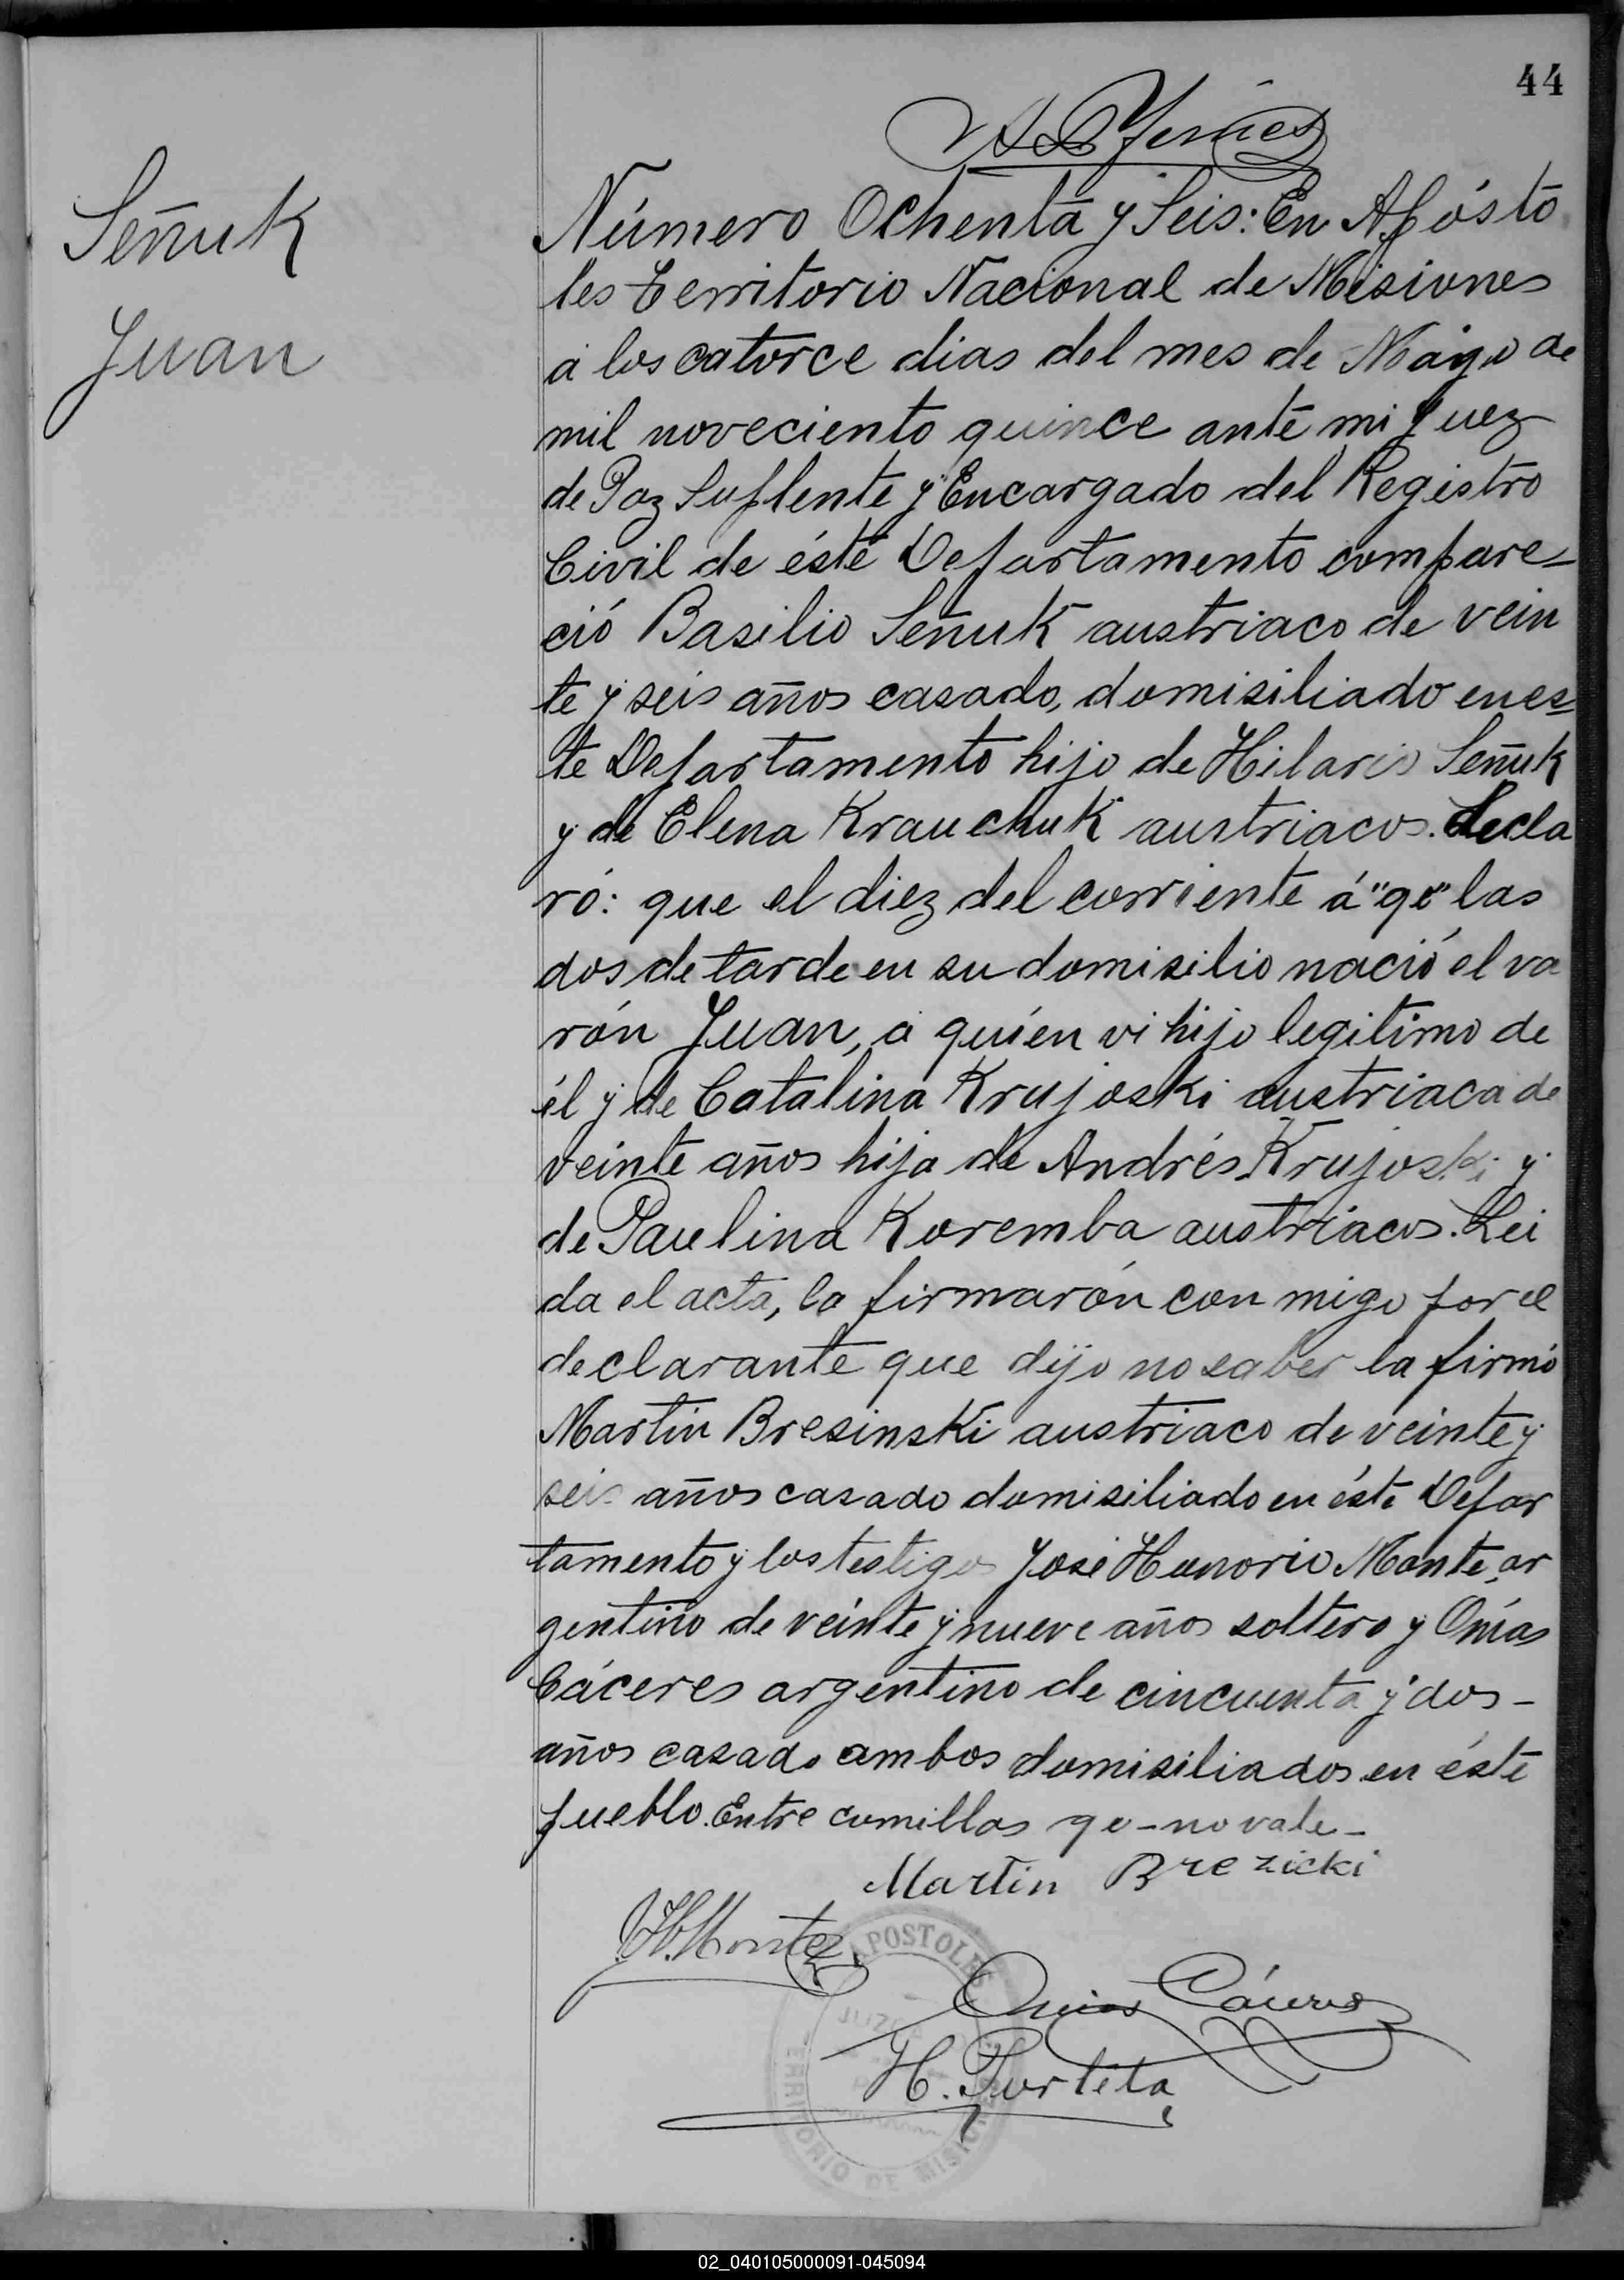 44
Señuk
Juan
Número Ochenta y Seis: En Apósto
les Territorio Nacional de Misiones
á los catorce dias del mes de Mayo de
mil noveciento quince ante mi Juez
de Paz Suplente y Encargado del Registro
Civil de éste Departamento compare=
ció Basilio Señuk austriaco de vein
te y seis años casado, domisiliado en es=
te Departamento hijo de Hilario Señuk
y de Elena Krauchuk austriacos. Decla
ró: que el diez del corriente á "qe" las
dos de tarde en su domisilio nació el va
rón Juan, a quien vi hijo legitimo de
él y de Catalina Krujoski austriaca de
veinte años hija de Andrés Krujoski y
de Paulina Koremba austriacos. Lei
da el acta, la firmarón con migo por el
declarante que dijo no saber la firmó
Martin Bresinski austriaco de veinte y
seis años casado domisiliado en éste Depar
tamento y los testigos José Honorio Monte, ar
gentino de veinte y nueve años soltero y Onías
Cáceres argentino de cincuenta y dos -
años casado ambos domisiliados en éste
pueblo. Entre comillas qe - no vale -
Martin Brezicki
J.H. Monte
APOSTOLES
Onias Cáceres
JUZG
H. Portela
TERRITORIO DE MISIONES
02_040105000091-045094